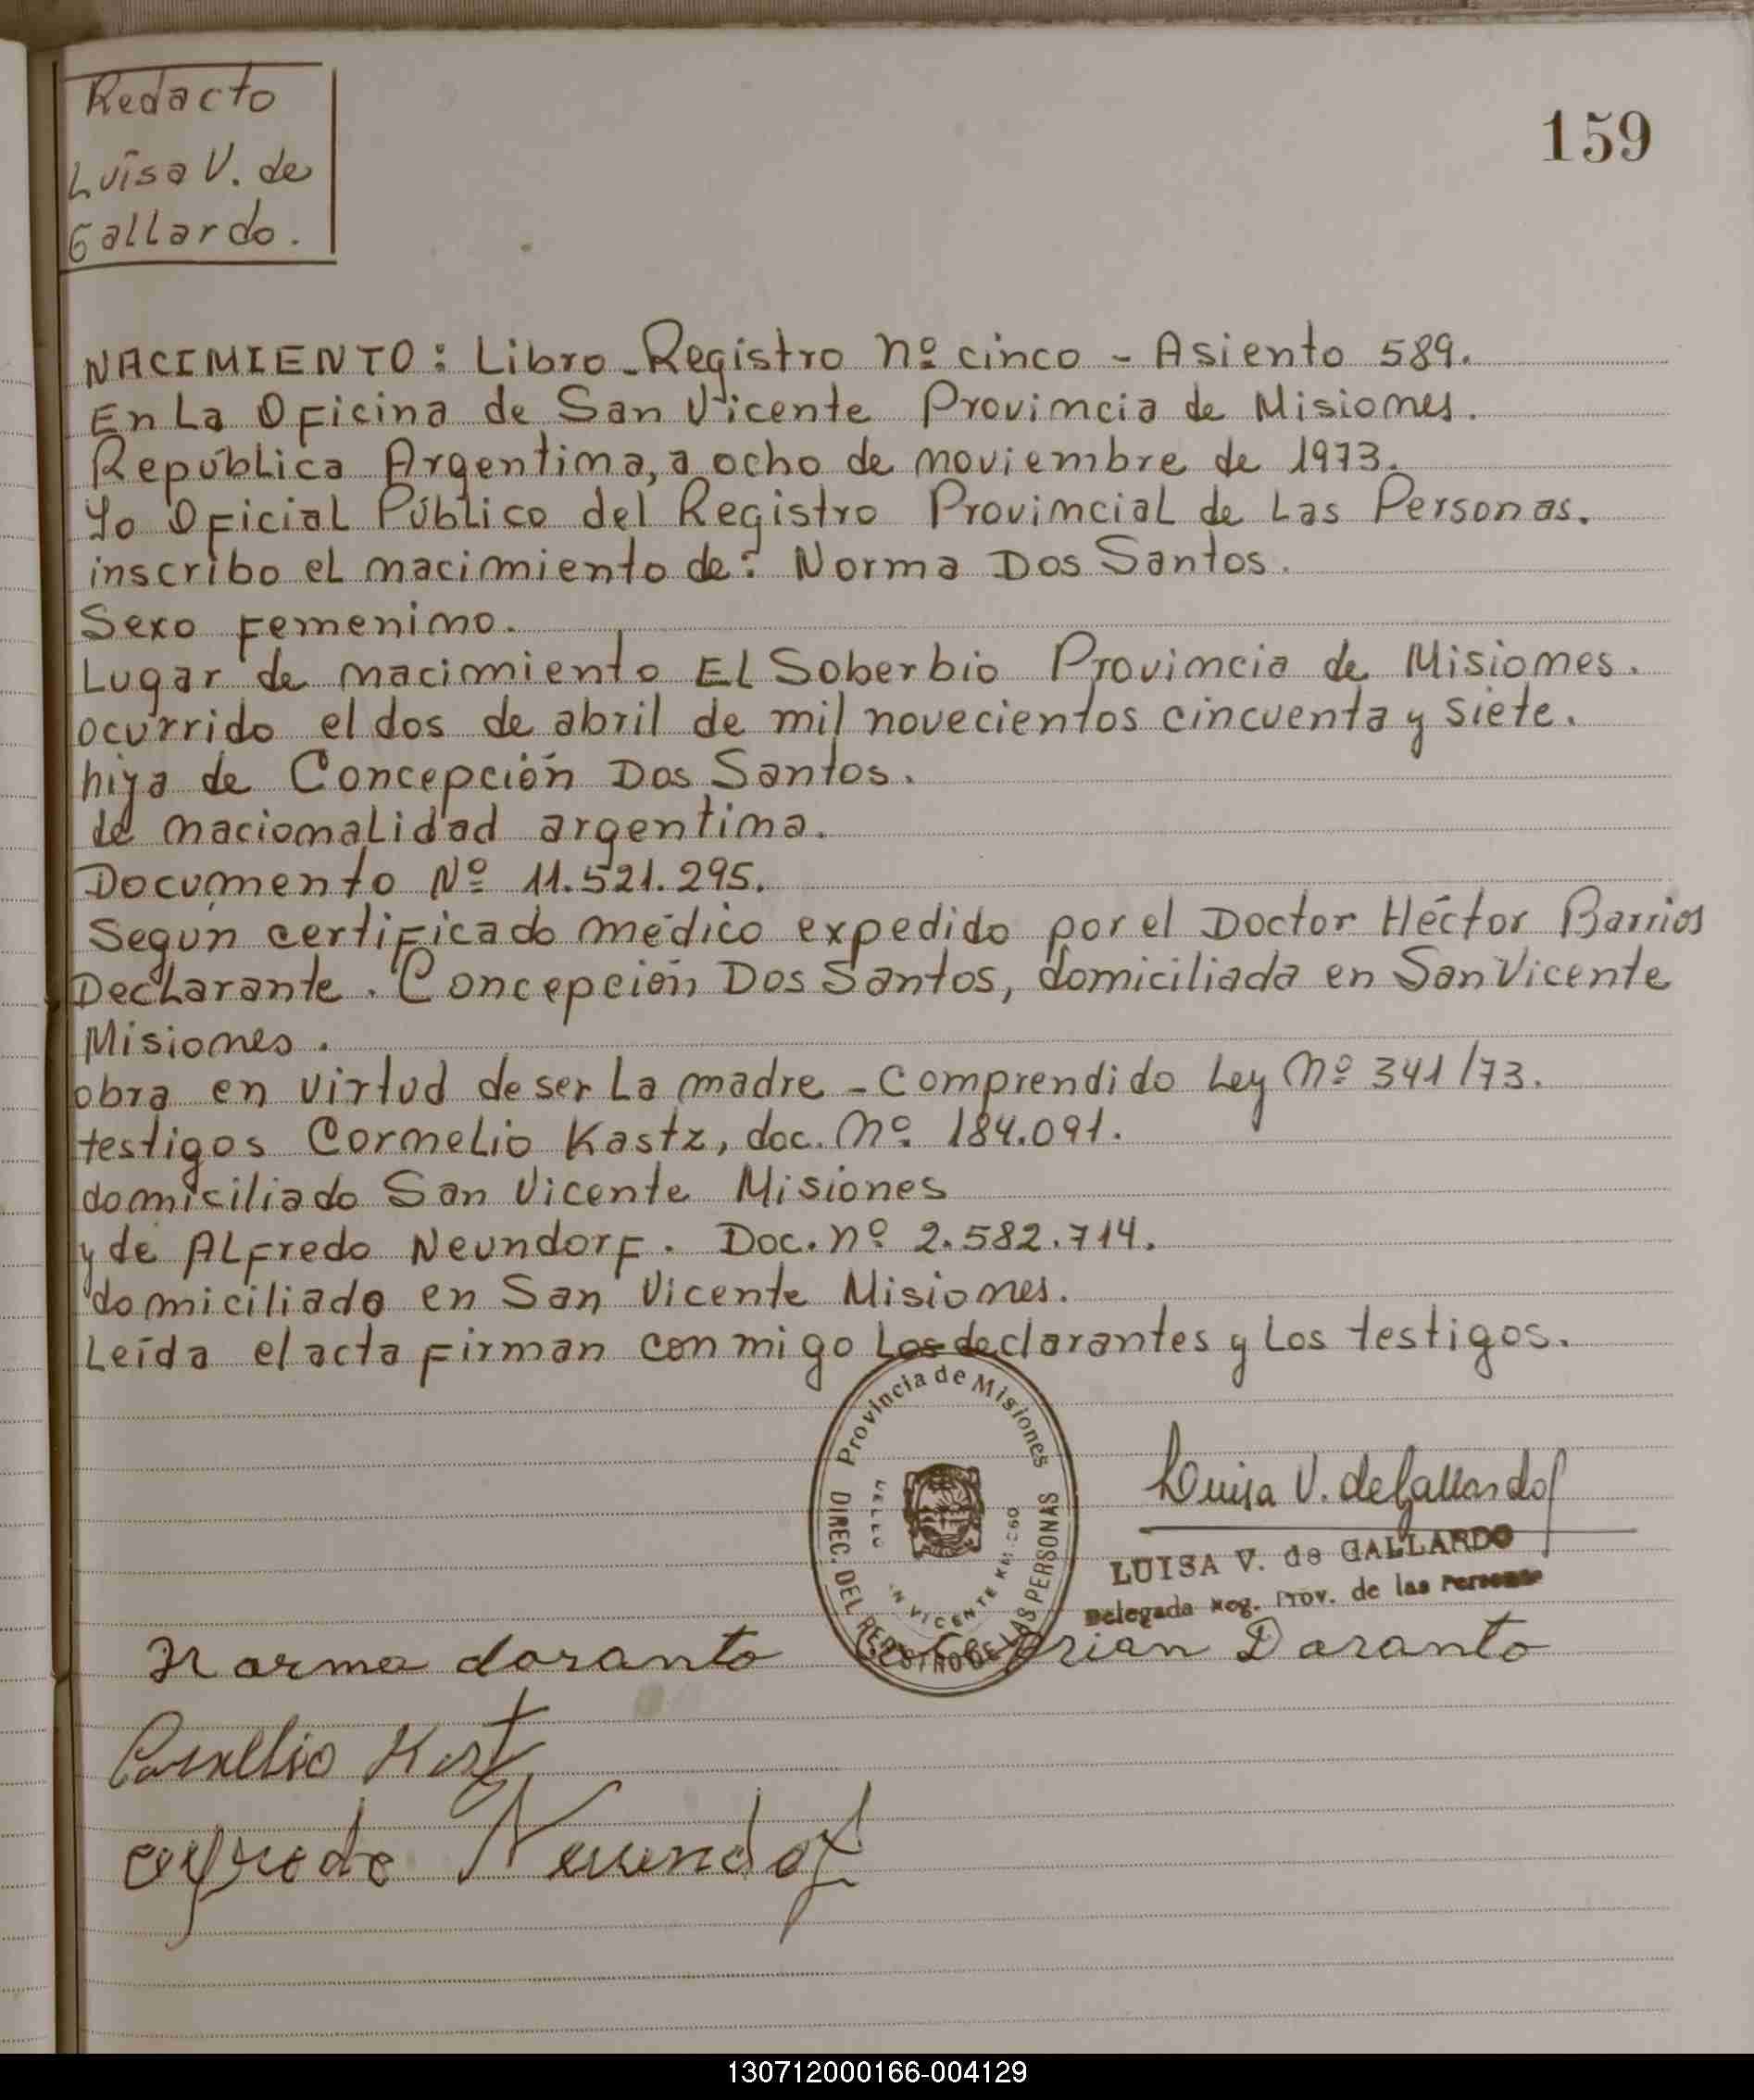 Redacto
Luisa V. de
Gallardo.
159
NACIMIENTO: Libro-Registro nº cinco - Asiento 589.
En La Oficina de San Vicente Provincia de Misiones.
República Argentina, a ocho de noviembre de 1973.
Yo Oficial Público del Registro Provincial de Las Personas.
inscribo el nacimiento de: Norma Dos Santos.
Sexo Femenino.
Lugar de nacimiento El Soberbio Provincia de Misiones.
ocurrido el dos de abril de mil novecientos cincuenta y siete.
hija de Concepción Dos Santos.
de nacionalidad argentina.
Documento Nº 11.521.295.
Según certificado médico expedido por el Doctor Héctor Barrios
Declarante. Concepción Dos Santos, domiciliada en San Vicente
Misiones.
obra en virtud de ser La madre - Comprendido Ley Nº 341/73.
testigos Cornelio Kastz, doc. Nº 184.091.
domiciliado San Vicente Misiones
y de Alfredo Neundorf. Doc. nº 2.582.714.
domiciliado en San Vicente Misiones.
Leída el acta firman conmigo Los declarantes y Los testigos.
Provincia de Misiones
DIREC. DEL REGISTRO DE LAS PERSONAS
VICENTE KM.
Luisa V. de Gallardo
LUISA V. de GALLARDO
Delegada Reg. Prov. de las Personas
Norma dosanto
Dosanto
Cornelio Kast
Alfredo Neundorf
130712000166-004129